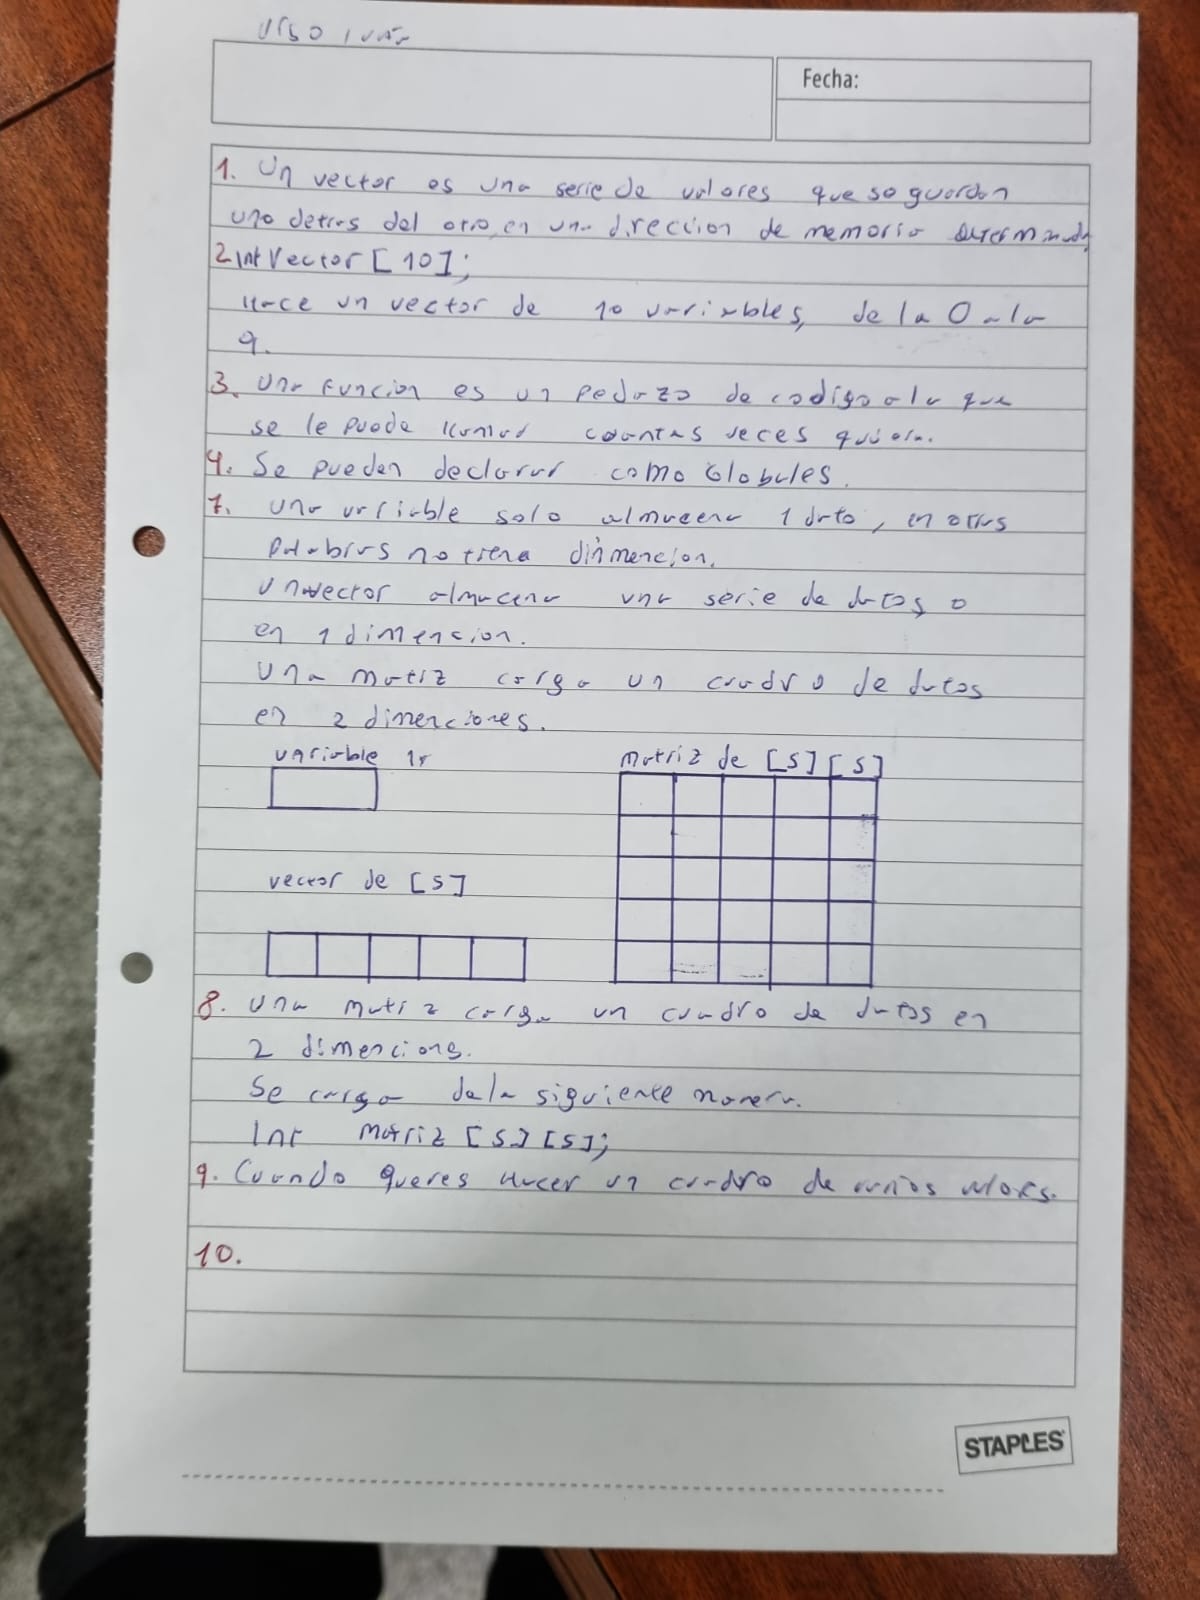 Fecha:
1. Un vector es una serie de valores que se guardan
uno detras del otro, en una direccion de memoria determinada
2 int Vector [10];
Hace un vector de 10 variables, de la 0 a la
9.
3. Una funcion es un pedazo de codigo a la que
se le puede llamar cuantas veces quiera.
4. Se pueden declarar como Globales.
7. una variable solo almacena 1 dato, en otras
palabras no tiene dinmencion.
Un vector almacena una serie de datos, o
en 1 dimencion.
Una matriz carga un cuadro de datos
en 2 dimenciones.
variable
matriz de [5] [5]
vector de [5]
8. Una matriz carga un cuadro de datos en
2 dimencions.
Se carga de la siguiente manera.
Int matriz [5] [5];
9. Cuando queres Hacer un cuadro de varios valores.
10.
STAPLES